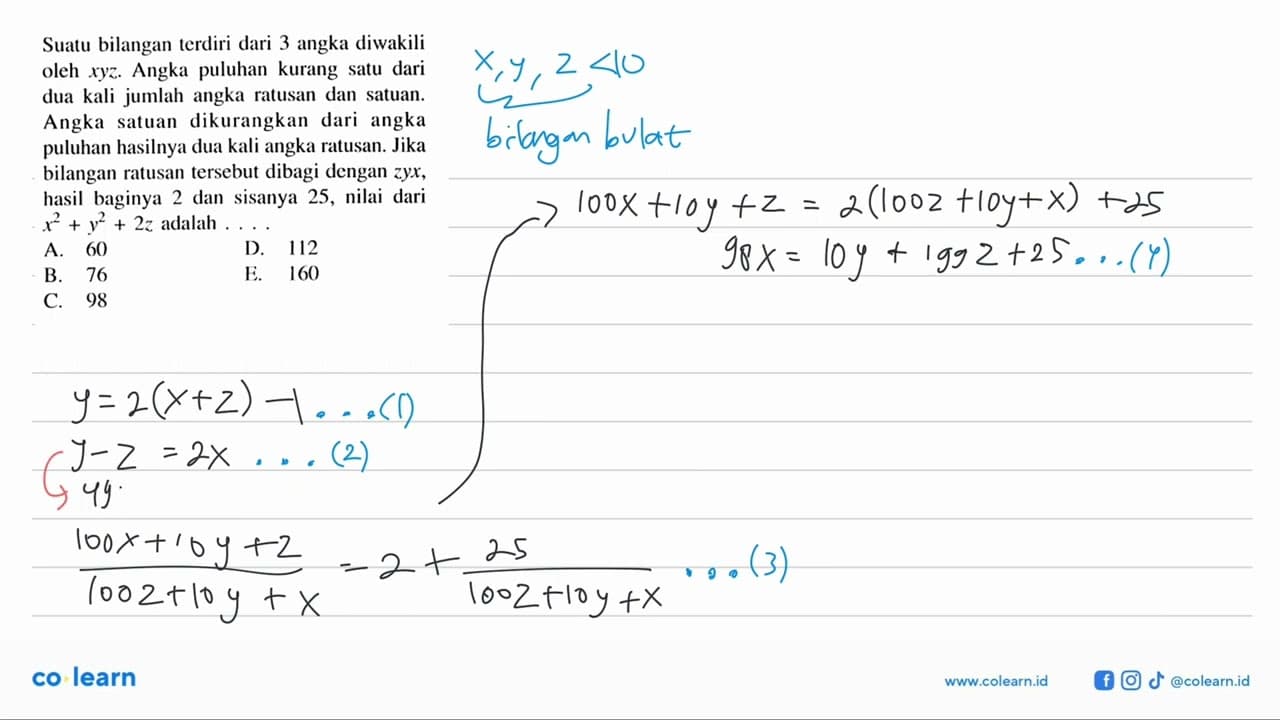 Suatu bilangan terdiri dari 3 angka diwakili
oleh xyz. Angka puluhan kurang satu dari
dua kali jumlah angka ratusan dan satuan.
Angka satuan dikurangkan dari angka
puluhan hasilnya dua kali angka ratusan. Jika
bilangan ratusan tersebut dibagi dengan zyx,
hasil baginya 2 dan sisanya 25, nilai dari
x² + y² + 2z adalah . . . .
A. 60 D. 112
B. 76 E. 160
C. 98
x, y, z < 10
bilangan bulat
100x + 10y + z = 2(100z + 10y + x) + 25
98x = 10y + 199z + 25 ... (4)
y = 2(x+z) - 1 ... (1)
y - z = 2x ... (2)
49.
(100x + 10y + z)/(100z + 10y + x) = 2 + 25/(100z + 10y + x) ... (3)
co·learn
www.colearn.id
@colearn.id